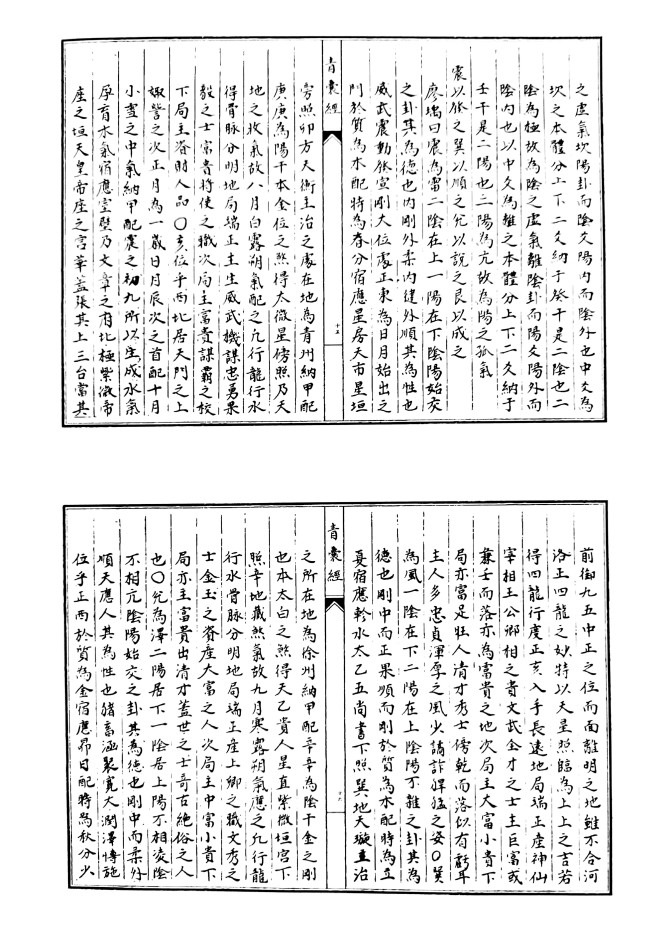 之虛氣坎陽卦而陰爻陽內而陰外也中爻為
坎之本體分上下二爻納于癸干是二陰也二
陰為極故為陰之虛氣離陰卦而陽爻陽外而
陰內也以中爻為離之本體分上下二爻納于
壬干是二陽也二陽為亢故為陽之孤氣
震以發之巽以順之兌以說之艮以成之
廖瑀曰震為雷二陰在上一陽在下陰陽始交
之卦其為德也內剛外柔內健外順其為性也
威武震動發宣剛大位處正東為日月始出之
門於質為木配時為春分宿應星房天市星垣
青囊經
十五
旁照卯方天衝主治之處在地為青州納甲配
庚庚為陽干本金位之煞得太微星傍照乃天
地之收氣故八月白露朔氣配之凡行龍行水
得骨脉分明地局端正主生威武機謀忠勇果
毅之士富貴將使之職次局主富貴謀霸之校
下局主資財人品〇亥位乎西北居天門之上
娵訾之次正月為一歲日月辰次之首配十月
小雪之中氣納甲配震之初九所以生成水氣
孕育木氣宿應室壁乃文章之府北極紫微帝
座之垣天皇帝座之宮華蓋張其上三台當其
前御九五中正之位而面離明之地雖不合河
洛正四龍之娵特以天星照臨為上上之吉若
得四龍行度正亥入手長遠地局端正產神仙
宰相王公卿相之貴文武全才之士主巨富或
兼壬而落亦為富貴之地次局主大富小貴下
局亦富足壯人清才秀士傍乾而落似有虧耳
主人多忠貞渾厚之風少譎詐獷猛之姿〇巽
為風一陰在下二陽在上陰陽不雜之卦其為
德也剛中而正果順而剛於質為木配時為立
夏宿應軫水太乙五尚書下照巽地天璇主治
青囊經
十六
之所在地為徐州納甲配辛辛為陰干金之剛
也本太白之煞得天乙貴人星直紫微垣宮下
照辛地藏煞氣故九月寒露朔氣應之凡行龍
行水骨脉分明地局端正產上卿之職文秀之
士金玉之資產大富之人次局主中富小貴下
局亦主富貴出清才蓋世之士奇古絕俗之人
也〇兌為澤二陽居下一陰居上陽不相凌陰
不相亢陰陽始交之卦其為德也剛中而柔外
順天應人其為性也豬畜涵聚寬大潤澤博施
位乎正西於質為金宿應昴日配時為秋分少